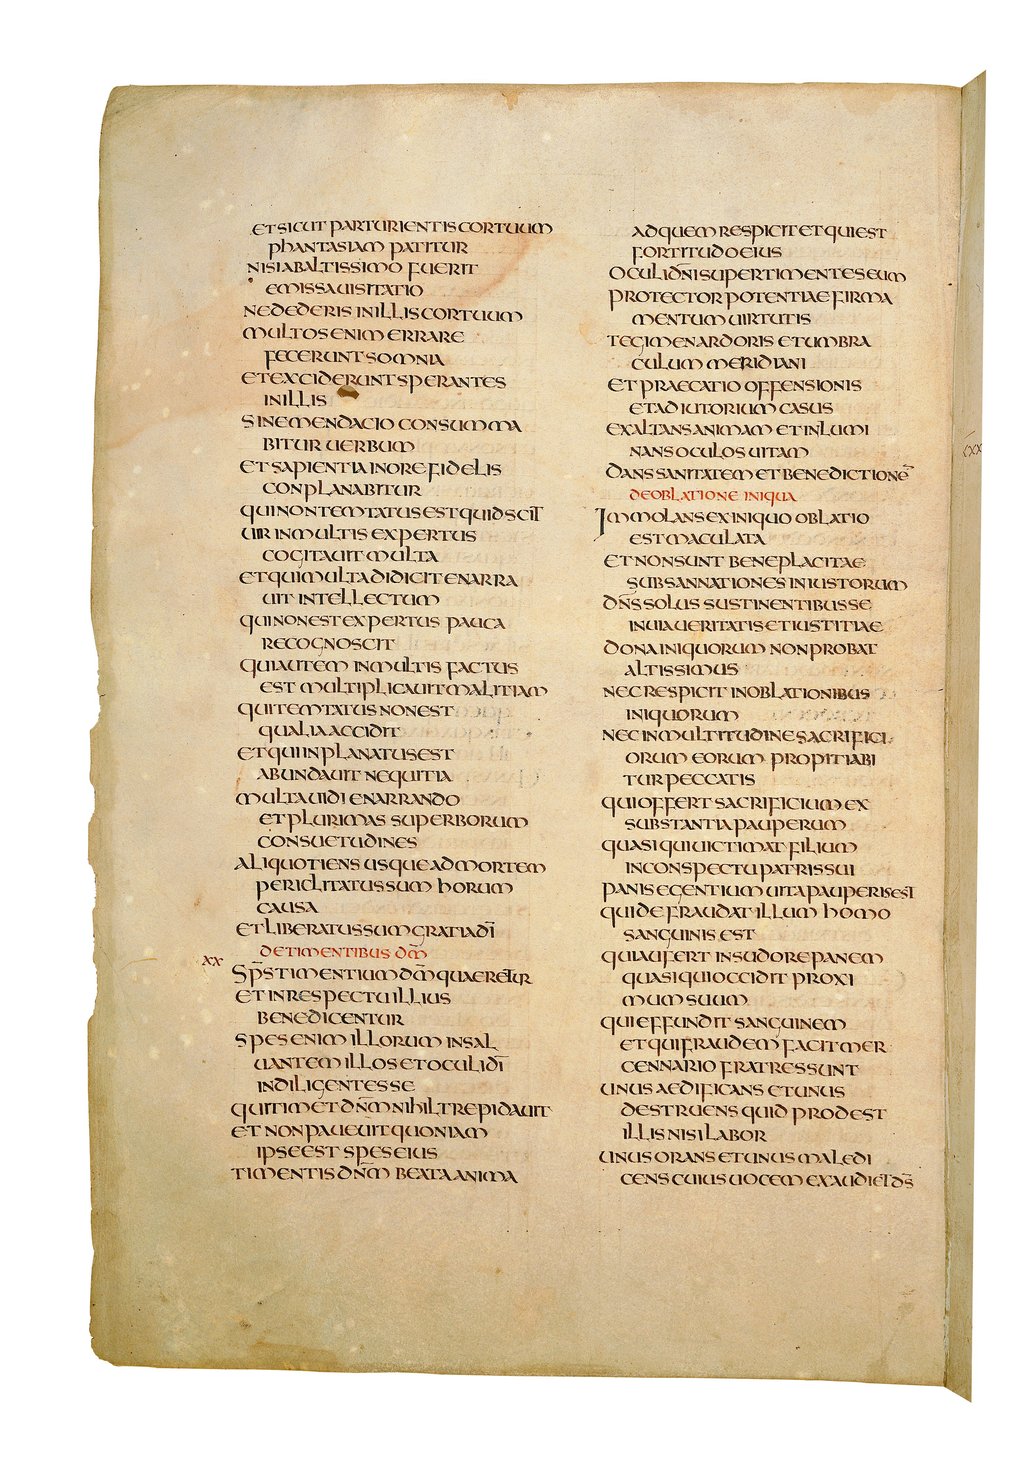 ET SICUT PARTURIENTIS COR TUUM
PHANTASIAM PATITUR
NISI AB ALTISSIMO FUERIT
EMISSA UISITATIO
NE DEDERIS IN ILLIS COR TUUM
MULTOS ENIM ERRARE
FECERUNT SOMNIA
ET EXCIDERUNT SPERANTES
IN ILLIS
SINE MENDACIO CONSUMMA
BITUR UERBUM
ET SAPIENTIA IN ORE FIDELIS
CONPLANABITUR
QUI NON TEMTATUS EST QUID SCIT
UIR IN MULTIS EXPERTUS
COGITAUIT MULTA
ET QUI MULTA DIDICIT ENARRA
UIT INTELLECTUM
QUI NON EST EXPERTUS PAUCA
RECOGNOSCIT
QUI AUTEM IN MULTIS FACTUS
EST MULTIPLICAUIT MALITIAM
QUI TEMTATUS NON EST
QUALIA ACCIDIT
ET QUI INPLANATUS EST
ABUNDAUIT NEQUITIA
MULTA UIDI ENARRANDO
ET PLURIMAS SUPERBORUM
CONSUETUDINES
ALIQUOTIENS USQUE AD MORTEM
PERICLITATUS SUM HORUM
CAUSA
ET LIBERATUS SUM GRATIA DĪ
DE TIMENTIBUS DM̄
XX SPS̄ TIMENTIUM DM̄ QUAERETUR
ET IN RESPECTU ILLIUS
BENEDICENTUR
SPES ENIM ILLORUM IN SAL
UANTEM ILLOS ET OCULI DĪ
IN DILIGENTES SE
QUI TIMET DNM̄ NIHIL TREPIDAUIT
ET NON PAUEUIT QUONIAM
IPSE EST SPES EIUS
TIMENTIS DNM̄ BEATA ANIMA
AD QUEM RESPICIT ET QUI EST
FORTITUDO EIUS
OCULI DN̄I SUPER TIMENTES EUM
PROTECTOR POTENTIAE FIRMA
MENTUM UIRTUTIS
TEGIMEN ARDORIS ET UMBRA
CULUM MERIDIANI
ET PRAECATIO OFFENSIONIS
ET ADIUTORIUM CASUS
EXALTANS ANIMAM ET INLUMI
NANS OCULOS UITAM
DANS SANITATEM ET BENEDICTIONĒ
DE OBLATIONE INIQUA
IMMOLANS EX INIQUO OBLATIO
EST MACULATA
ET NON SUNT BENEPLACITAE
SUBSANNATIONES INIUSTORUM
DNS̄ SOLUS SUSTINENTIBUS SE
IN UIA UERITATIS ET IUSTITIAE
DONA INIQUORUM NON PROBAT
ALTISSIMUS
NEC RESPICIT IN OBLATIONIBUS
INIQUORUM
NEC IN MULTITUDINE SACRIFICI
ORUM EORUM PROPITIABI
TUR PECCATIS
QUI OFFERT SACRIFICIUM EX
SUBSTANTIA PAUPERUM
QUASI QUI UICTIMAT FILIUM
IN CONSPECTU PATRIS SUI
PANIS EGENTIUM UITA PAUPERIS EST
QUI DEFRAUDAT ILLUM HOMO
SANGUINIS EST
QUI AUFERT IN SUDORE PANEM
QUASI QUI OCCIDIT PROXI
MUM SUUM
QUI EFFUNDIT SANGUINEM
ET QUI FRAUDEM FACIT MER
CENNARIO FRATRES SUNT
UNUS AEDIFICANS ET UNUS
DESTRUENS QUID PRODEST
ILLIS NISI LABOR
UNUS ORANS ET UNUS MALEDI
CENS CUIUS UOCEM EXAUDIET DS̄